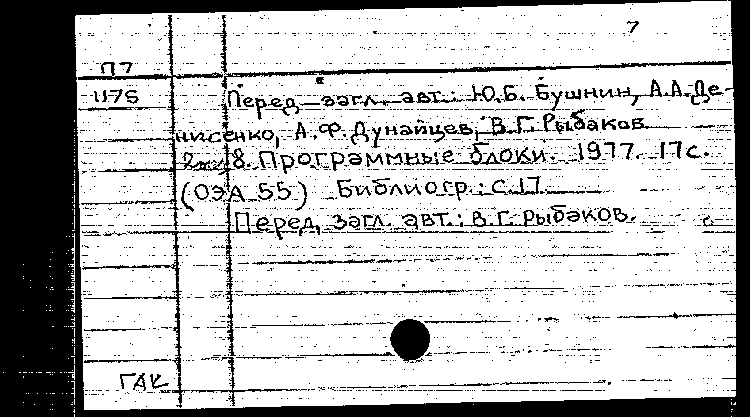 7
П7
1175 Перед загл. авт.: Ю.Б. Бушнин, А.А. Де-
нисенко, А.Ф. Дунайцев, В.Г. Рыбаков
8. Программные блоки. 1977. 17 с.
(ОЭА 55) Библиогр.: с. 17
Перед. загл. авт.: В.Г. Рыбаков.
ГАК